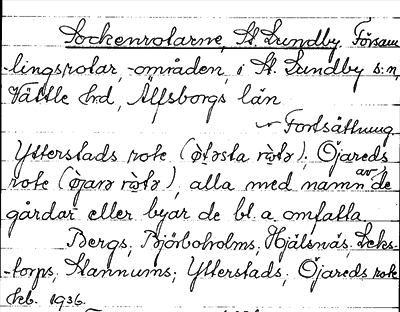 Sockenrotarne, St. Lundby. Försam
-lingsrotar, -områden, i St. Lundby s:n,
Vättle hd, Älfsborgs län
Fortsättning.
Ytterstads rote (ə̀təsta rò̱tə); Öjareds
rote (ò̱jarə rò̱tə), alla med namn av de
gårdar eller byar de bl. a. omfatta.
Bergs; Björboholms; Hjälsnäs;
-torps; Stannums; Ytterstads; Öjareds rote
Feb. 1936.